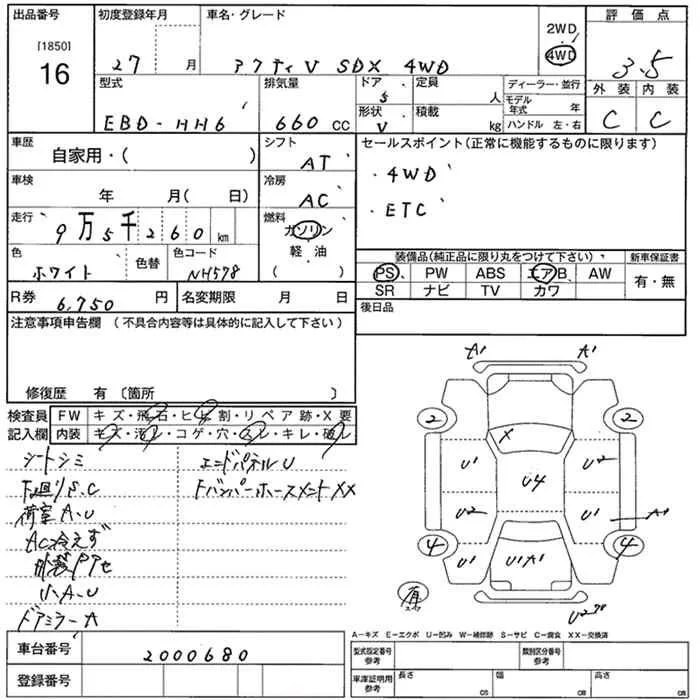 出品番号 初度登録年月 車名・グレード 評価点
[1850]
16
27 月 アクティV SDX 4WD
2WD
4WD
3.5
外装 内装
C C
型式 排気量 ドア 定員 ディーラー・並行
5 人 モデル年式 年
形状 積載 ハンドル 左・右
EBD-HH6 660 CC V kg
車歴 シフト セールスポイント(正常に機能するものに限ります)
自家用・( ) AT
・4WD
車検 冷房
年 月( 日) AC
・ETC
走行 燃料
9万5千260 km ガソリン
軽・油
( )
色 色替 色コード
ホワイト NH578
装備品(純正品に限り丸をつけて下さい) 新車保証書
PS PW ABS エアB AW 有・無
SR ナビ TV カワ
R券 6,750 円 名変期限 月 日
後日品
注意事項申告欄(不具合内容等は具体的に記入して下さい)
修復歴 有〔箇所 〕
検査員 FW キズ・飛石・ヒビ割・リペア跡・X要
記入欄 内装 キズ・汚レ・コゲ・穴・スレ・キレ・破レ
シートシミ エンドパネルU
下廻りS.C FバンパーホースメントXX
荷室A.U
AC冷えず
小A.U
ドアミラーA
A1 A1
2 2
X
U1 U2
U4
U2 U1 A1
4 4
U1 U1A1 U1
有
U2
A-キズ E-エクボ U-凹み W-補修跡 S-サビ C-腐食 XX-交換済
車台番号 2000680
登録番号
型式指定番号 参考 類別区分番号 参考
車庫証明用 参考 長さ cm 幅 cm 高さ cm